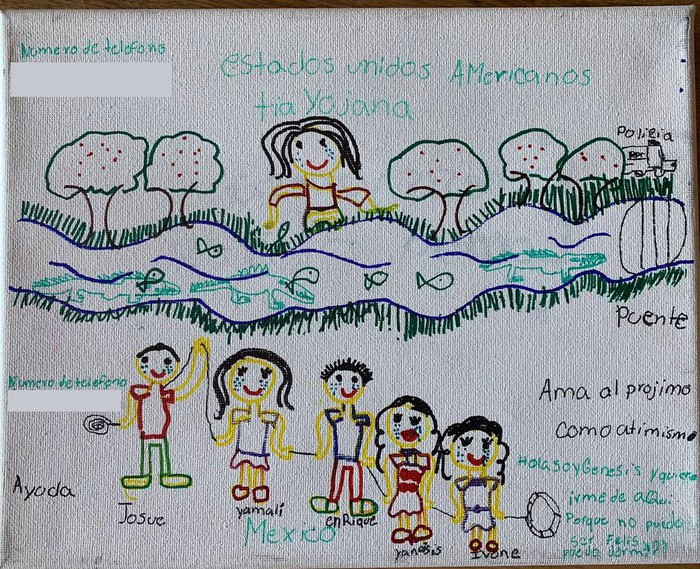 Numero de telofono
estados unidos AMericanos
tia Yojana
Policia
Puente
Numero de telefono
Ama al projimo
Como atimismo
Hola soy Genesis y quiero
irme de aqui
Porque no puedo
ser Felis
puedo dormir
Ayuda
Josue
yamali
enRique
yanosis
Ivone
Mexico